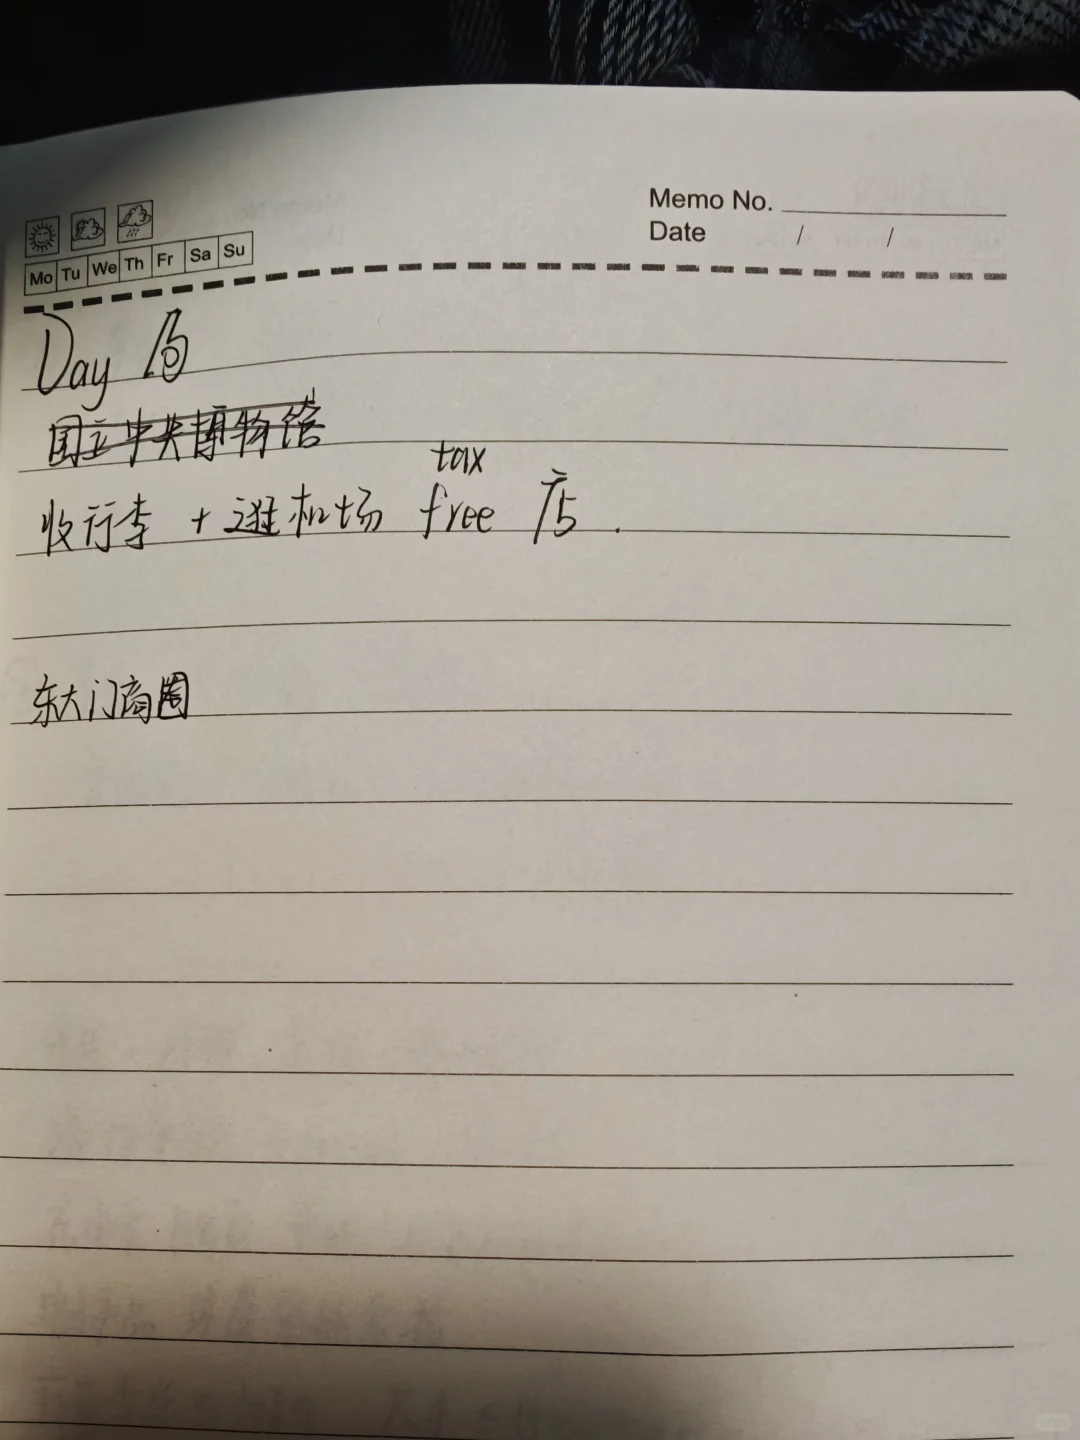 Memo No.
Date / /
Mo Tu We Th Fr Sa Su
Day 6
国立中央博物馆
收行李 + 逛机场 tax free 店.
东大门商圈